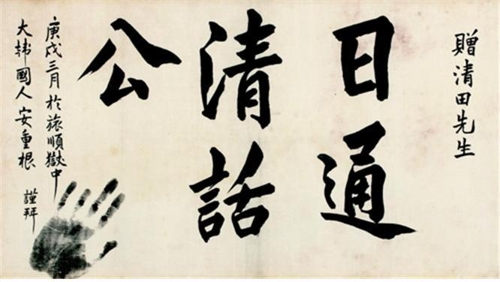 贈清田先生
日通
清話
公
庚戌三月於旅順獄中
大韓國人 安重根 謹拜